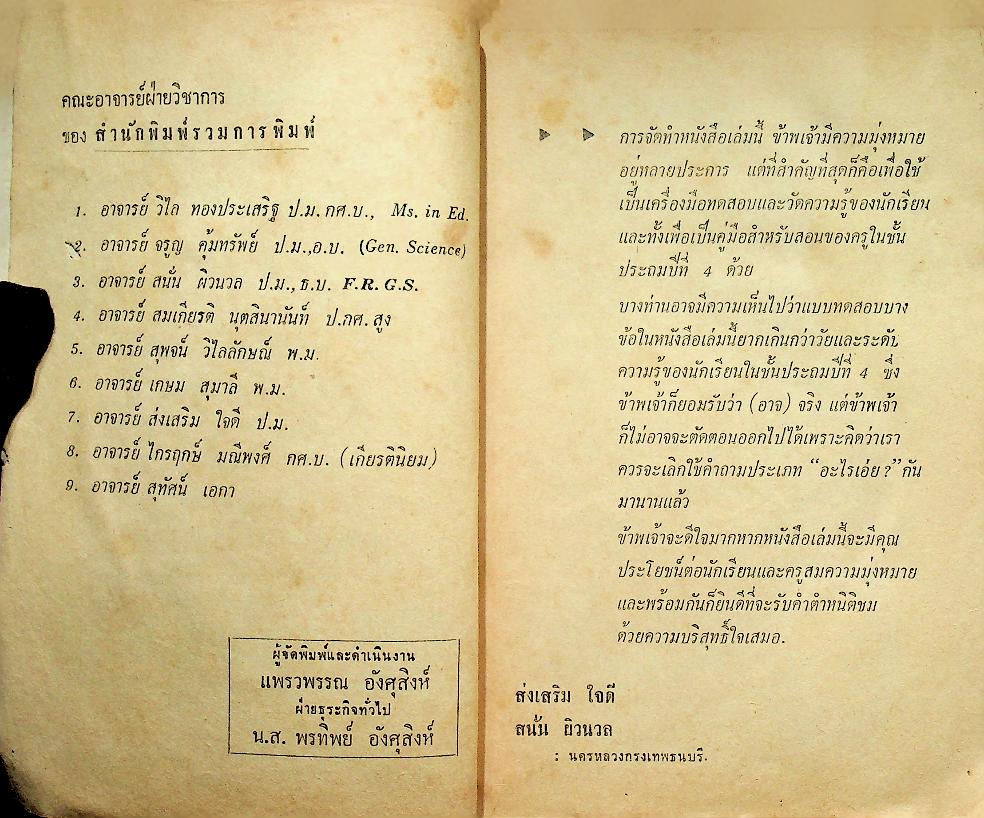 คณะอาจารย์ฝ่ายวิชาการ
ของ สำนักพิมพ์รวมการพิมพ์
1. อาจารย์ วิไล ทองประเสริฐ ป.ม. กศ.บ., Ms. in Ed.
๒. อาจารย์ จรูญ คุ้มทรัพย์ ป.ม.,อ.บ. (Gen. Science)
3. อาจารย์ สนั่น ผิวนวล ป.ม., ธ.บ. F.R.G.S.
4. อาจารย์ สมเกียรติ นุตสินานันท์ ป.กศ. สูง
5. อาจารย์ สุพจน์ วิไลลักษณ์ พ.ม.
6. อาจารย์ เกษม สุมาลี พ.ม.
7. อาจารย์ ส่งเสริม ใจดี ป.ม.
8. อาจารย์ ไกรฤกษ์ มณีพงศ์ กศ.บ. (เกียรตินิยม)
9. อาจารย์ สุทัศน์ เอกา
ผู้จัดพิมพ์และดำเนินงาน
แพรวพรรณ อังศุสิงห์
ฝ่ายธุระกิจทั่วไป
น.ส. พรทิพย์ อังศุสิงห์
การจัดทำหนังสือเล่มนี้ ข้าพเจ้ามีความมุ่งหมาย
อยู่หลายประการ แต่ที่สำคัญที่สุดก็คือเพื่อใช้
เป็นเครื่องมือทดสอบและวัดความรู้ของนักเรียน
และทั้งเพื่อเป็นคู่มือสำหรับสอนของครูในชั้น
ประถมปีที่ 4 ด้วย
บางท่านอาจมีความเห็นไปว่าแบบทดสอบบาง
ข้อในหนังสือเล่มนี้ยากเกินกว่าวัยและระดับ
ความรู้ของนักเรียนในชั้นประถมปีที่ 4 ซึ่ง
ข้าพเจ้าก็ยอมรับว่า (อาจ) จริง แต่ข้าพเจ้า
ก็ไม่อาจจะตัดตอนออกไปได้เพราะคิดว่าเรา
ควรจะเลิกใช้คำถามประเภท “อะไรเอ่ย ?” กัน
มานานแล้ว
ข้าพเจ้าจะดีใจมากหากหนังสือเล่มนี้จะมีคุณ
ประโยชน์ต่อนักเรียนและครูสมความมุ่งหมาย
และพร้อมกันก็ยินดีที่จะรับคำตำหนิติชม
ด้วยความบริสุทธิ์ใจเสมอ.
ส่งเสริม ใจดี
สนั่น ผิวนวล
: นครหลวงกรุงเทพธนบุรี.